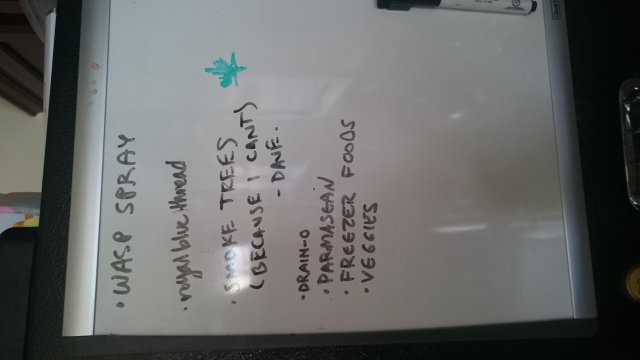 • WASP SPRAY
• royal blue thread
• SMOKE TREES
(BECAUSE I CANT)
- DAVE.
• DRAIN-O
• PARMASEAN
• FREEZER FOODS
• VEGGIES